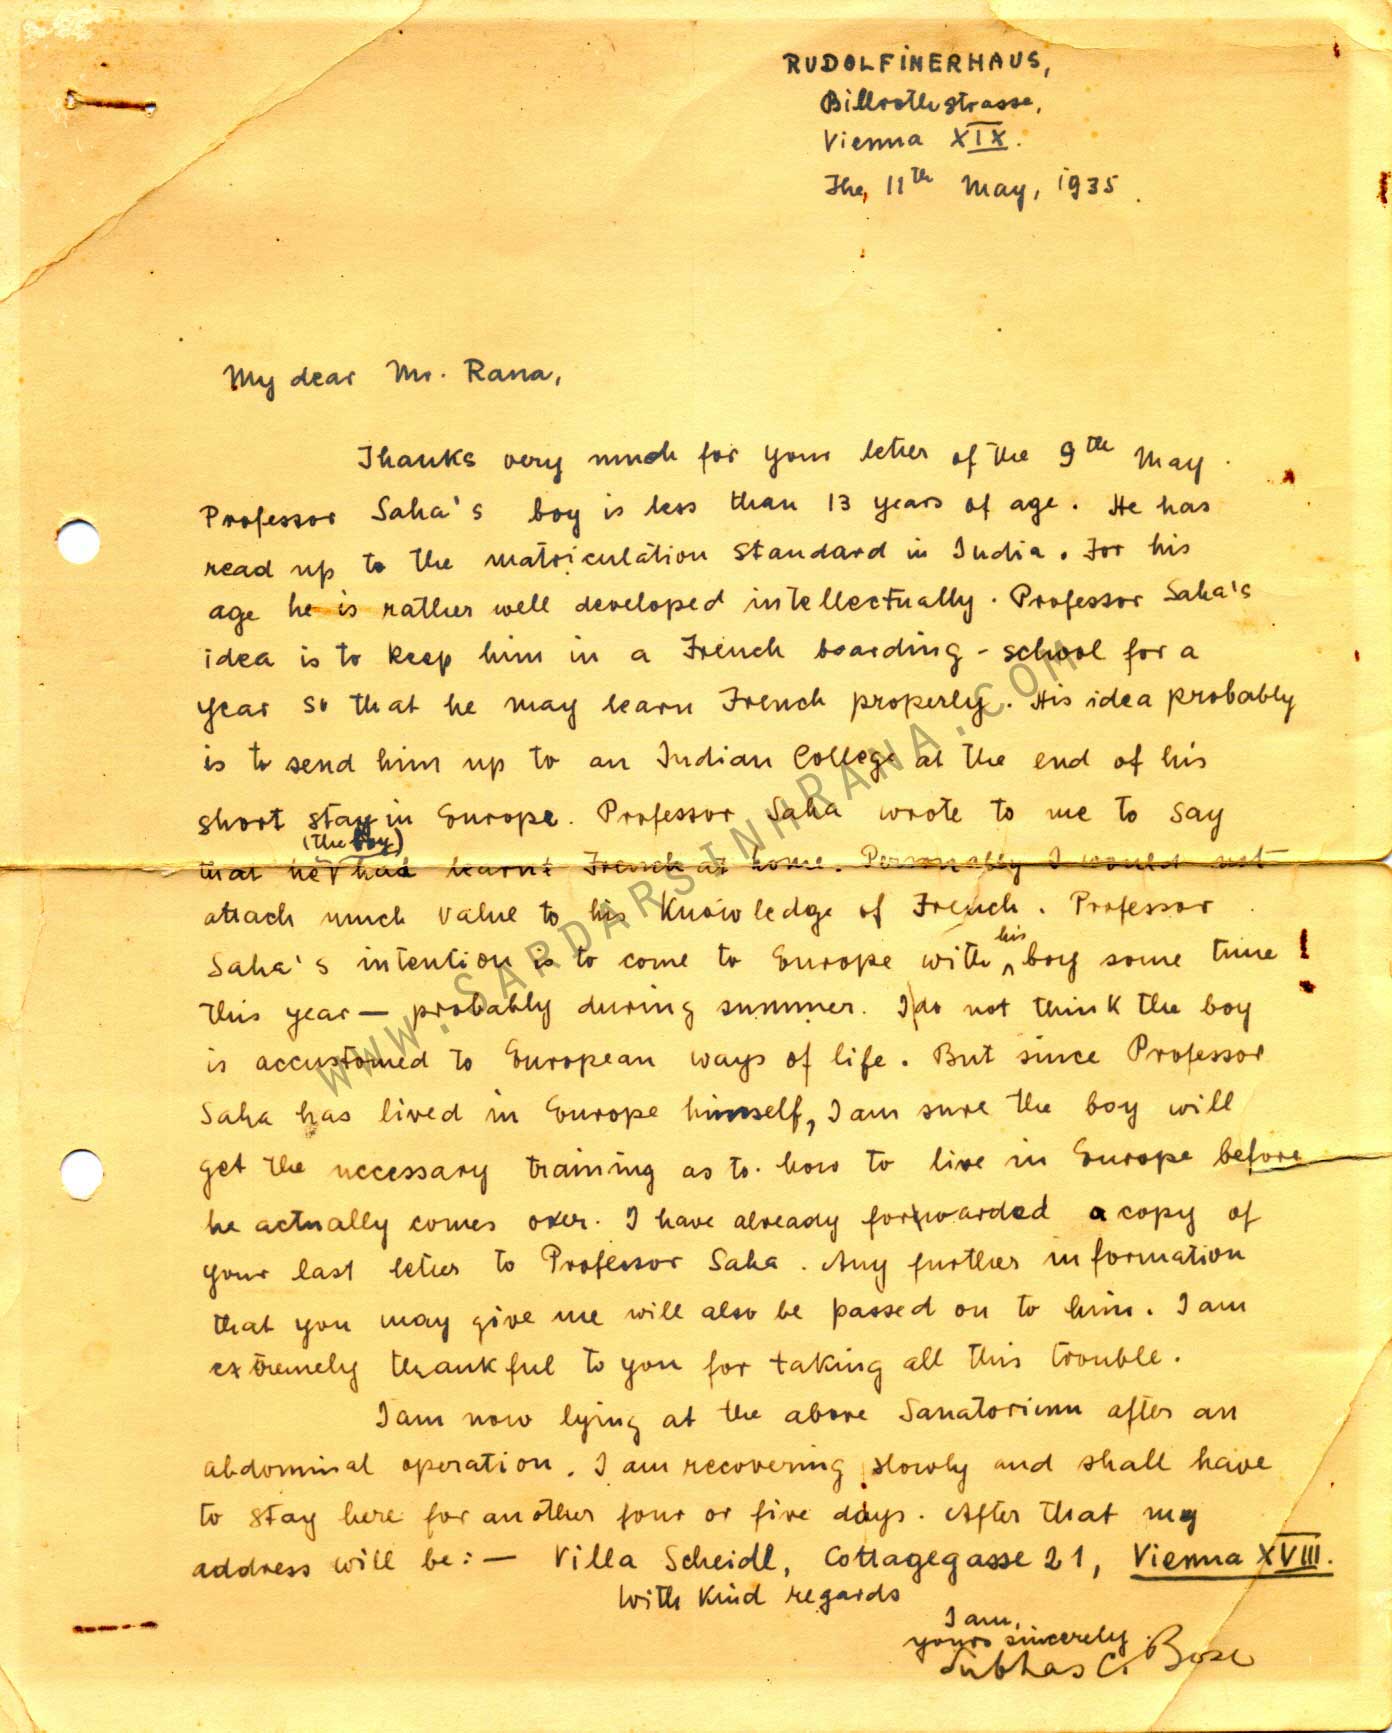 RUDOLFINERHAUS,
Billrothstrasse,
Vienna XIX.
The, 11th May, 1935.
My dear Mr. Rana,
Thanks very much for your letter of the 9th May.
Professor Saha's boy is less than 13 years of age. He has
read up to the matriculation standard in India. For his
age he is rather well developed intellectually. Professor Saha's
idea is to keep him in a French boarding-school for a
year so that he may learn French properly. His idea probably
is to send him up to an Indian College at the end of his
short stay in Europe. Professor Saha wrote to me to say
(the boy)
that he had learnt French at home. Personally I would not
attach much value to his knowledge of French. Professor
his
Saha's intention is to come to Europe with boy some time
this year — probably during summer. I do not think the boy
is accustomed to European ways of life. But since Professor
Saha has lived in Europe himself, I am sure the boy will
get the necessary training as to how to live in Europe before
he actually comes over. I have already forwarded a copy of
your last letter to Professor Saha. Any further information
that you may give me will also be passed on to him. I am
extremely thankful to you for taking all this trouble.
I am now lying at the above Sanatorium after an
abdominal operation. I am recovering slowly and shall have
to stay here for another four or five days. After that my
address will be:— Villa Scheidl, Cottagegasse 21, Vienna XVIII.
With kind regards
I am,
yours sincerely
Subhas C. Bose
WWW.SARDARSINHRANA.COM